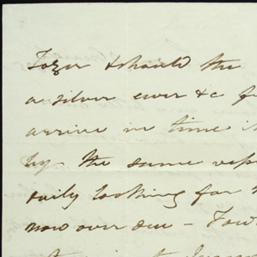 Tozer & should the
a silver ewer & c
arrive in time
by - the same
daily looking for
now over due -